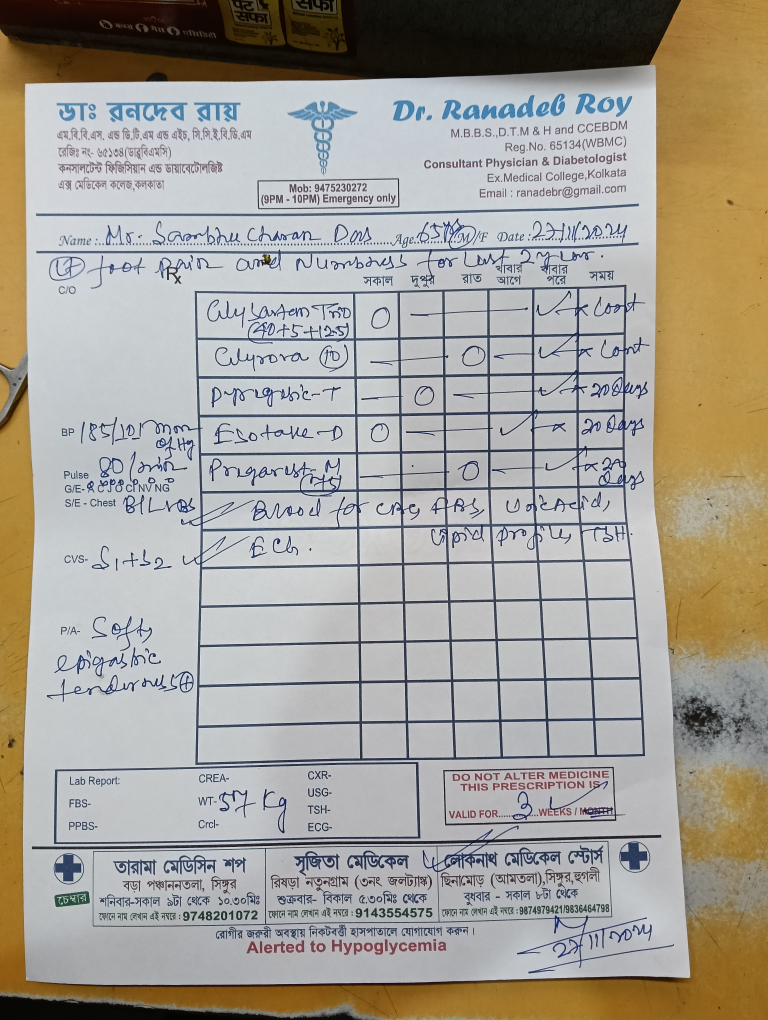 ডাঃ রনদেব রায়
এম.বি.বি.এস. এন্ড ডি.টি.এম এন্ড এইচ, সি.সি.ই.বি.ডি.এম
রেজিঃ নং- ৬৫১৩৪(ডাব্লুবিএমসি)
কনসালটেন্ট ফিজিসিয়ান এন্ড ডায়াবেটোলজিষ্ট
এক্স মেডিকেল কলেজ,কলকাতা
Mob: 9475230272
(9PM - 10PM) Emergency only
Dr. Ranadeb Roy
M.B.B.S.,D.T.M & H and CCEBDM
Reg.No. 65134(WBMC)
Consultant Physician & Diabetologist
Ex.Medical College,Kolkata
Email : ranadebr@gmail.com
Name : Mr. Sambhu Charan Das Age 65 yrs M/F Date : 27/11/2024
foot pain and Numbness for last 2 year.
C/O Rx
সকাল দুপুর রাত খাবার আগে খাবার পরে সময়
Trio x Cont
(40+5+12.5)
(10) x Cont
-T x 20 Days
-D x 20 Days
-M x 20 Days
(75)
BP 185/101 mm of Hg
Pulse 80/min
G/E-
S/E - Chest B/L VBS
Blood for CBC, FBS, Uric Acid,
Lipid profile, TSH.
ECG.
CVS- S1+S2
P/A- Soft,
epigastric
tenderness +
Lab Report: CREA- CXR-
FBS- WT- 57 Kg USG-
PPBS- Crcl- TSH-
ECG-
DO NOT ALTER MEDICINE
THIS PRESCRIPTION IS
VALID FOR 3 WEEKS / MONTH
চেম্বার
তারামা মেডিসিন শপ
বড়া পঞ্চাননতলা, সিঙ্গুর
শনিবার-সকাল ৯টা থেকে ১০.৩০মিঃ
ফোনে নাম লেখান এই নম্বরে : 9748201072
সৃজিতা মেডিকেল
রিষড়া নতুনগ্রাম (৩নং জলট্যাঙ্ক)
শুক্রবার- বিকাল ৫.৩০মিঃ থেকে
ফোনে নাম লেখান এই নম্বরে : 9143554575
লোকনাথ মেডিকেল স্টোর্স
ছিনামোড় (আমতলা),সিঙ্গুর,হুগলী
বুধবার - সকাল ৮টা থেকে
ফোনে নাম লেখান এই নম্বরে : 9874979421/9836464798
রোগীর জরুরী অবস্থায় নিকটবর্তী হাসপাতালে যোগাযোগ করুন।
Alerted to Hypoglycemia
27/11/2024